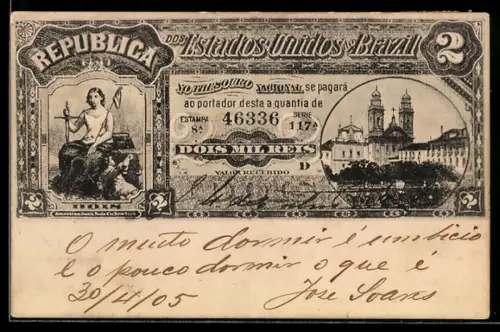 REPUBLICA
DOS Estados Unidos do Brazil
2
NO THESOURO NACIONAL se pagará
ao portador desta a quantia de
ESTAMPA 8ª 46336 SERIE 117ª
DOIS MIL REIS
VALOR RECEBIDO
D
2 DOIS 2
2
American Bank Note Co New York
O muito dormir é um bicio
e o pouco dormir o que é
30/4/05 Jose Soares